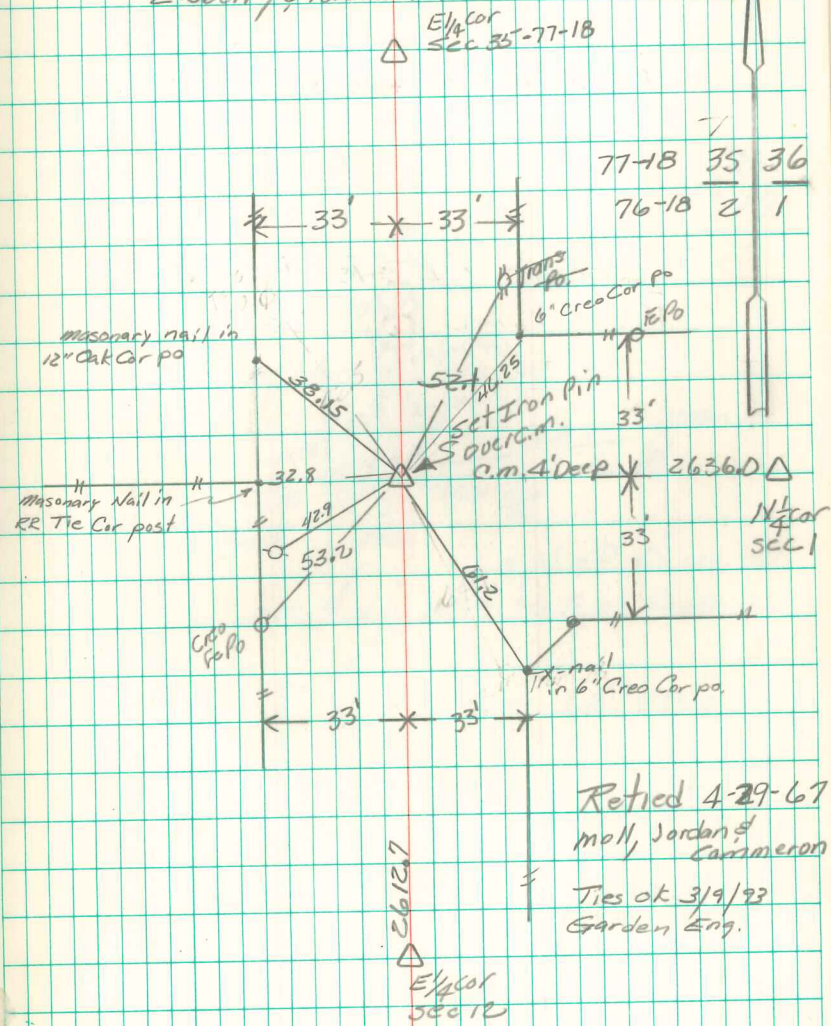 E1/4 Cor
Sec 35-77-18
77-18 35 36
76-18 2 1
33' 33'
Trans
Po.
6" Creo Cor po
FePo
masonary nail in
12" Oak Cor po
38.15
52.1
46.25
33'
Set Iron Pin
5 over C.m.
C.m. 4' Deep
2636.0
N1/4 cor
Sec 1
32.8
masonary Nail in
RR Tie Cor post
42.9
53.2
33'
61.2
Creo
FePo
x-nail
in 6" Creo Cor po.
33' 33'
Retied 4-29-67
Moll, Jordan &
Cammeron
2612.7
Ties ok 3/9/93
Garden Eng.
E1/4 Cor
Sec 12